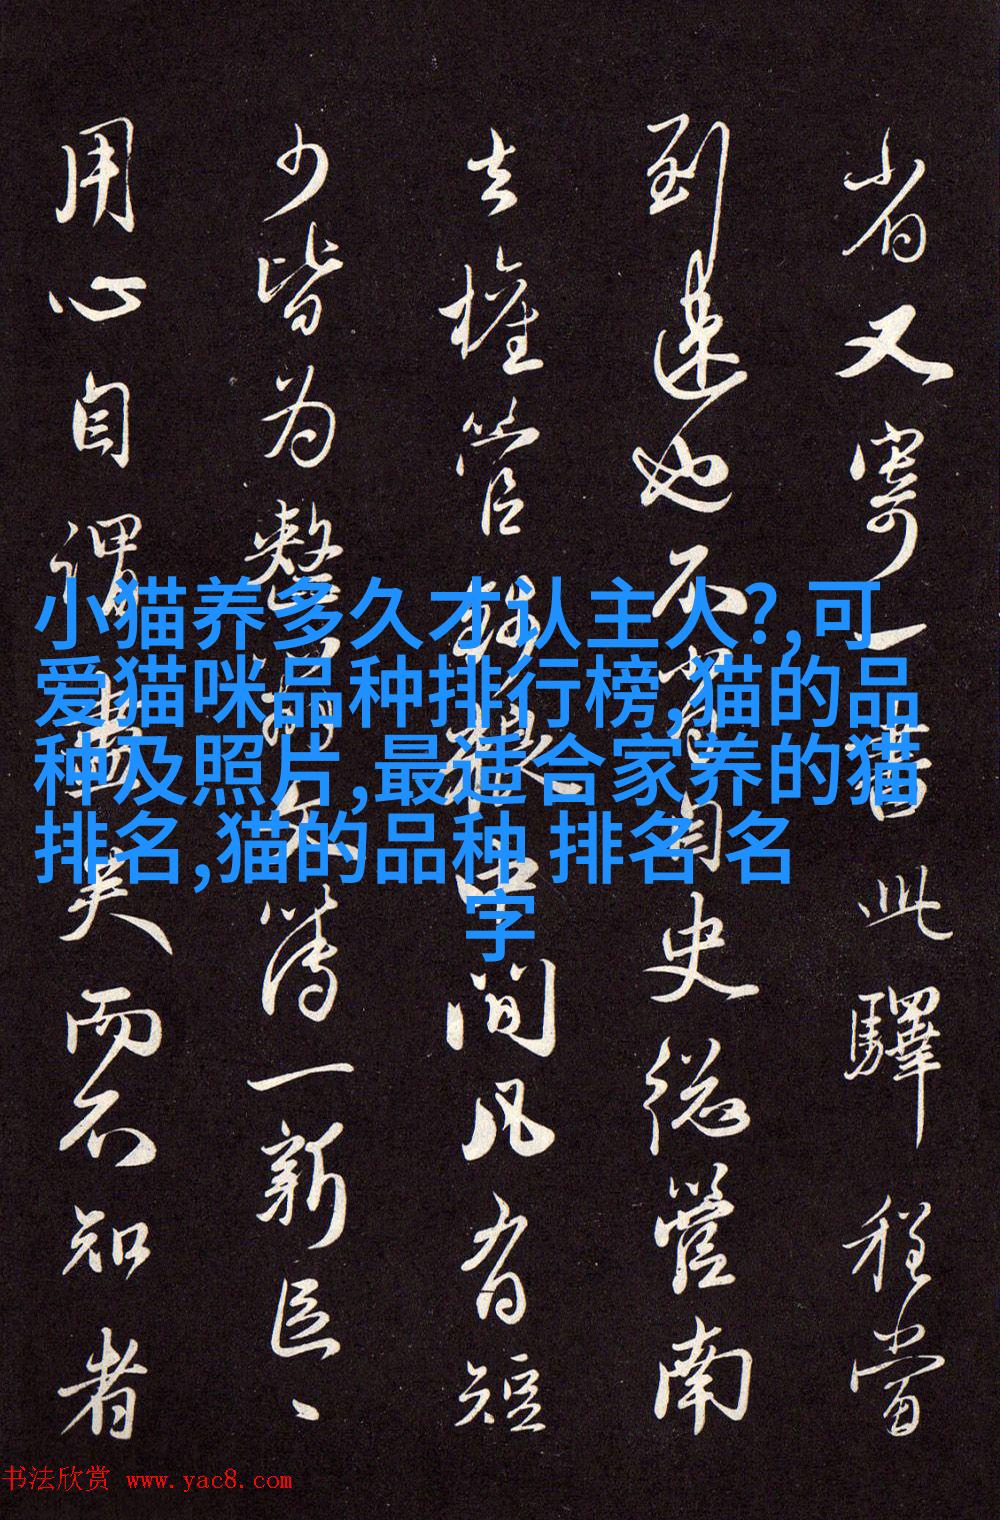 省又寄一書此驛程當
到速也不審自史總管南
去權管提中間凡有短
少皆为整一新
用心自謂盡美而不知者
小猫养多久才认主人?,可
爱猫咪品种排行榜,猫的品
种及照片,最适合家养的猫
排名,猫的品种 排名 名
字
书法欣赏 www.yac8.com